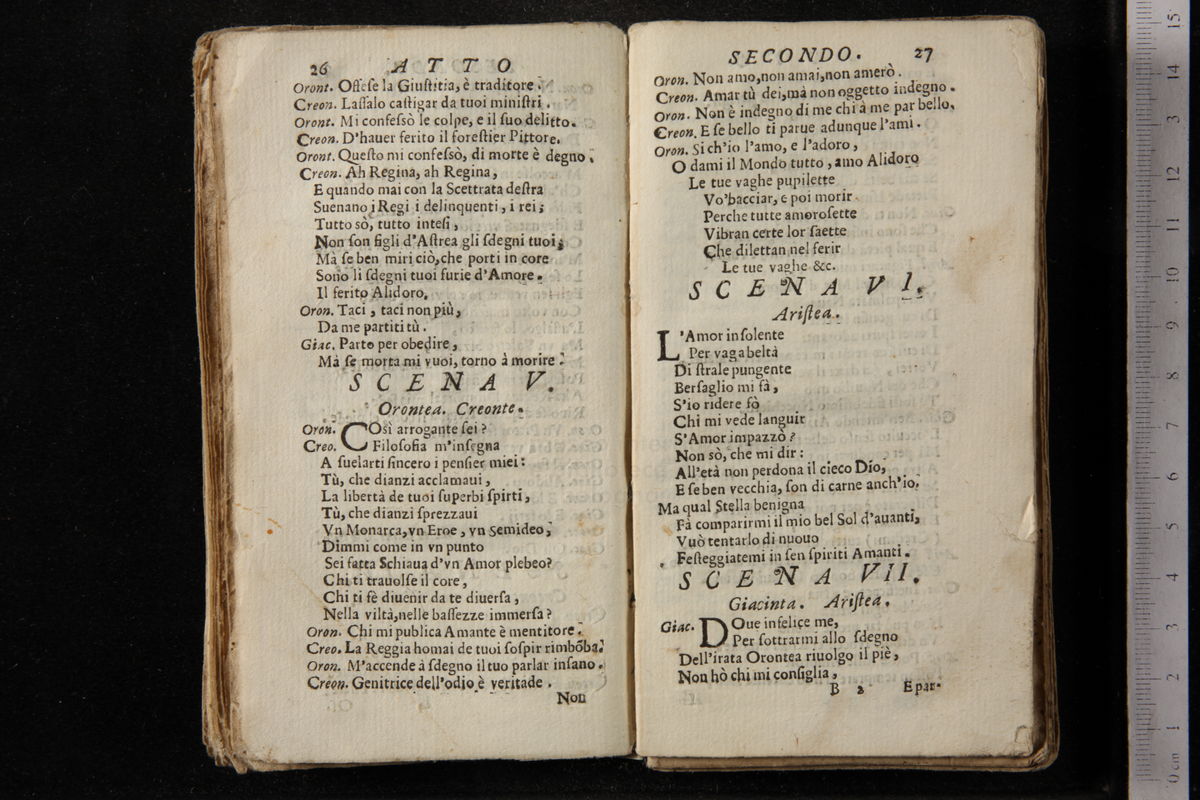 26 ATTO
Oront. Offeſe la Giuſtitia, è traditore.
Creon. Laſſalo caſtigar da tuoi miniſtri.
Oront. Mi confeſsò le colpe, e il ſuo delitto.
Creon. D'hauer ferito il foreſtier Pittore.
Oront. Queſto mi confeſsò, di morte è degno.
Creon. Ah Regina, ah Regina,
E quando mai con la Scettrata deſtra
Suenano i Regi i delinquenti, i rei;
Tutto sò, tutto inteſi,
Non ſon figli d'Aſtrea gli ſdegni tuoi;
Mà ſe ben miri ciò, che porti in core
Sono li ſdegni tuoi furie d'Amore.
Il ferito Alidoro.
Oron. Taci, taci non più,
Da me partiti tù.
Giac. Parto per obedire,
Mà ſe morta mi vuoi, torno à morire.
SCENA V.
Orontea. Creonte.
Oron. COsì arrogante ſei?
Creo. Filoſofia m'inſegna
A ſuelarti ſincero i penſier miei:
Tù, che dianzi acclamaui,
La libertà de tuoi ſuperbi ſpirti,
Tù, che dianzi ſprezzaui
Vn Monarca, vn Eroe, vn Semideo,
Dimmi come in vn punto
Sei fatta Schiaua d'vn Amor plebeo?
Chi ti trauolſe il core,
Chi ti fè diuenir da te diuerſa,
Nella viltà, nelle baſſezze immerſa?
Oron. Chi mi publica Amante è mentitore.
Creo. La Reggia homai de tuoi ſoſpir rimbõba.
Oron. M'accende à ſdegno il tuo parlar inſano.
Creon. Genitrice dell'odio è veritade.
Non
SECONDO. 27
Oron. Non amo, non amai, non amerò.
Creon. Amar tù dei, mà non oggetto indegno.
Oron. Non è indegno di me chi à me par bello.
Creon. E ſe bello ti parue adunque l'ami.
Oron. Si ch'io l'amo, e l'adoro,
O dami il Mondo tutto, amo Alidoro
Le tue vaghe pupilette
Vo'bacciar, e poi morir
Perche tutte amoroſette
Vibran certe lor ſaette
Che dilettan nel ferir
Le tue vaghe &c.
SCENA VI.
Ariſtea.
L'Amor inſolente
Per vaga beltà
Di ſtrale pungente
Berſaglio mi fà,
S'io ridere fò
Chi mi vede languir
S'Amor impazzò?
Non sò, che mi dir:
All'età non perdona il cieco Dio,
E ſe ben vecchia, ſon di carne anch'io.
Ma qual Stella benigna
Fà comparirmi il mio bel Sol d'auanti,
Vuò tentarlo di nuouo
Feſteggiatemi in ſen ſpiriti Amanti.
SCENA VII.
Giacinta. Ariſtea.
Giac. DOue infelice me,
Per ſottrarmi allo ſdegno
Dell'irata Orontea riuolgo il piè,
Non hò chi mi conſiglia,
B 2 E par-
0 cm 1 2 3 4 5 6 7 8 9 10 11 12 13 14 15